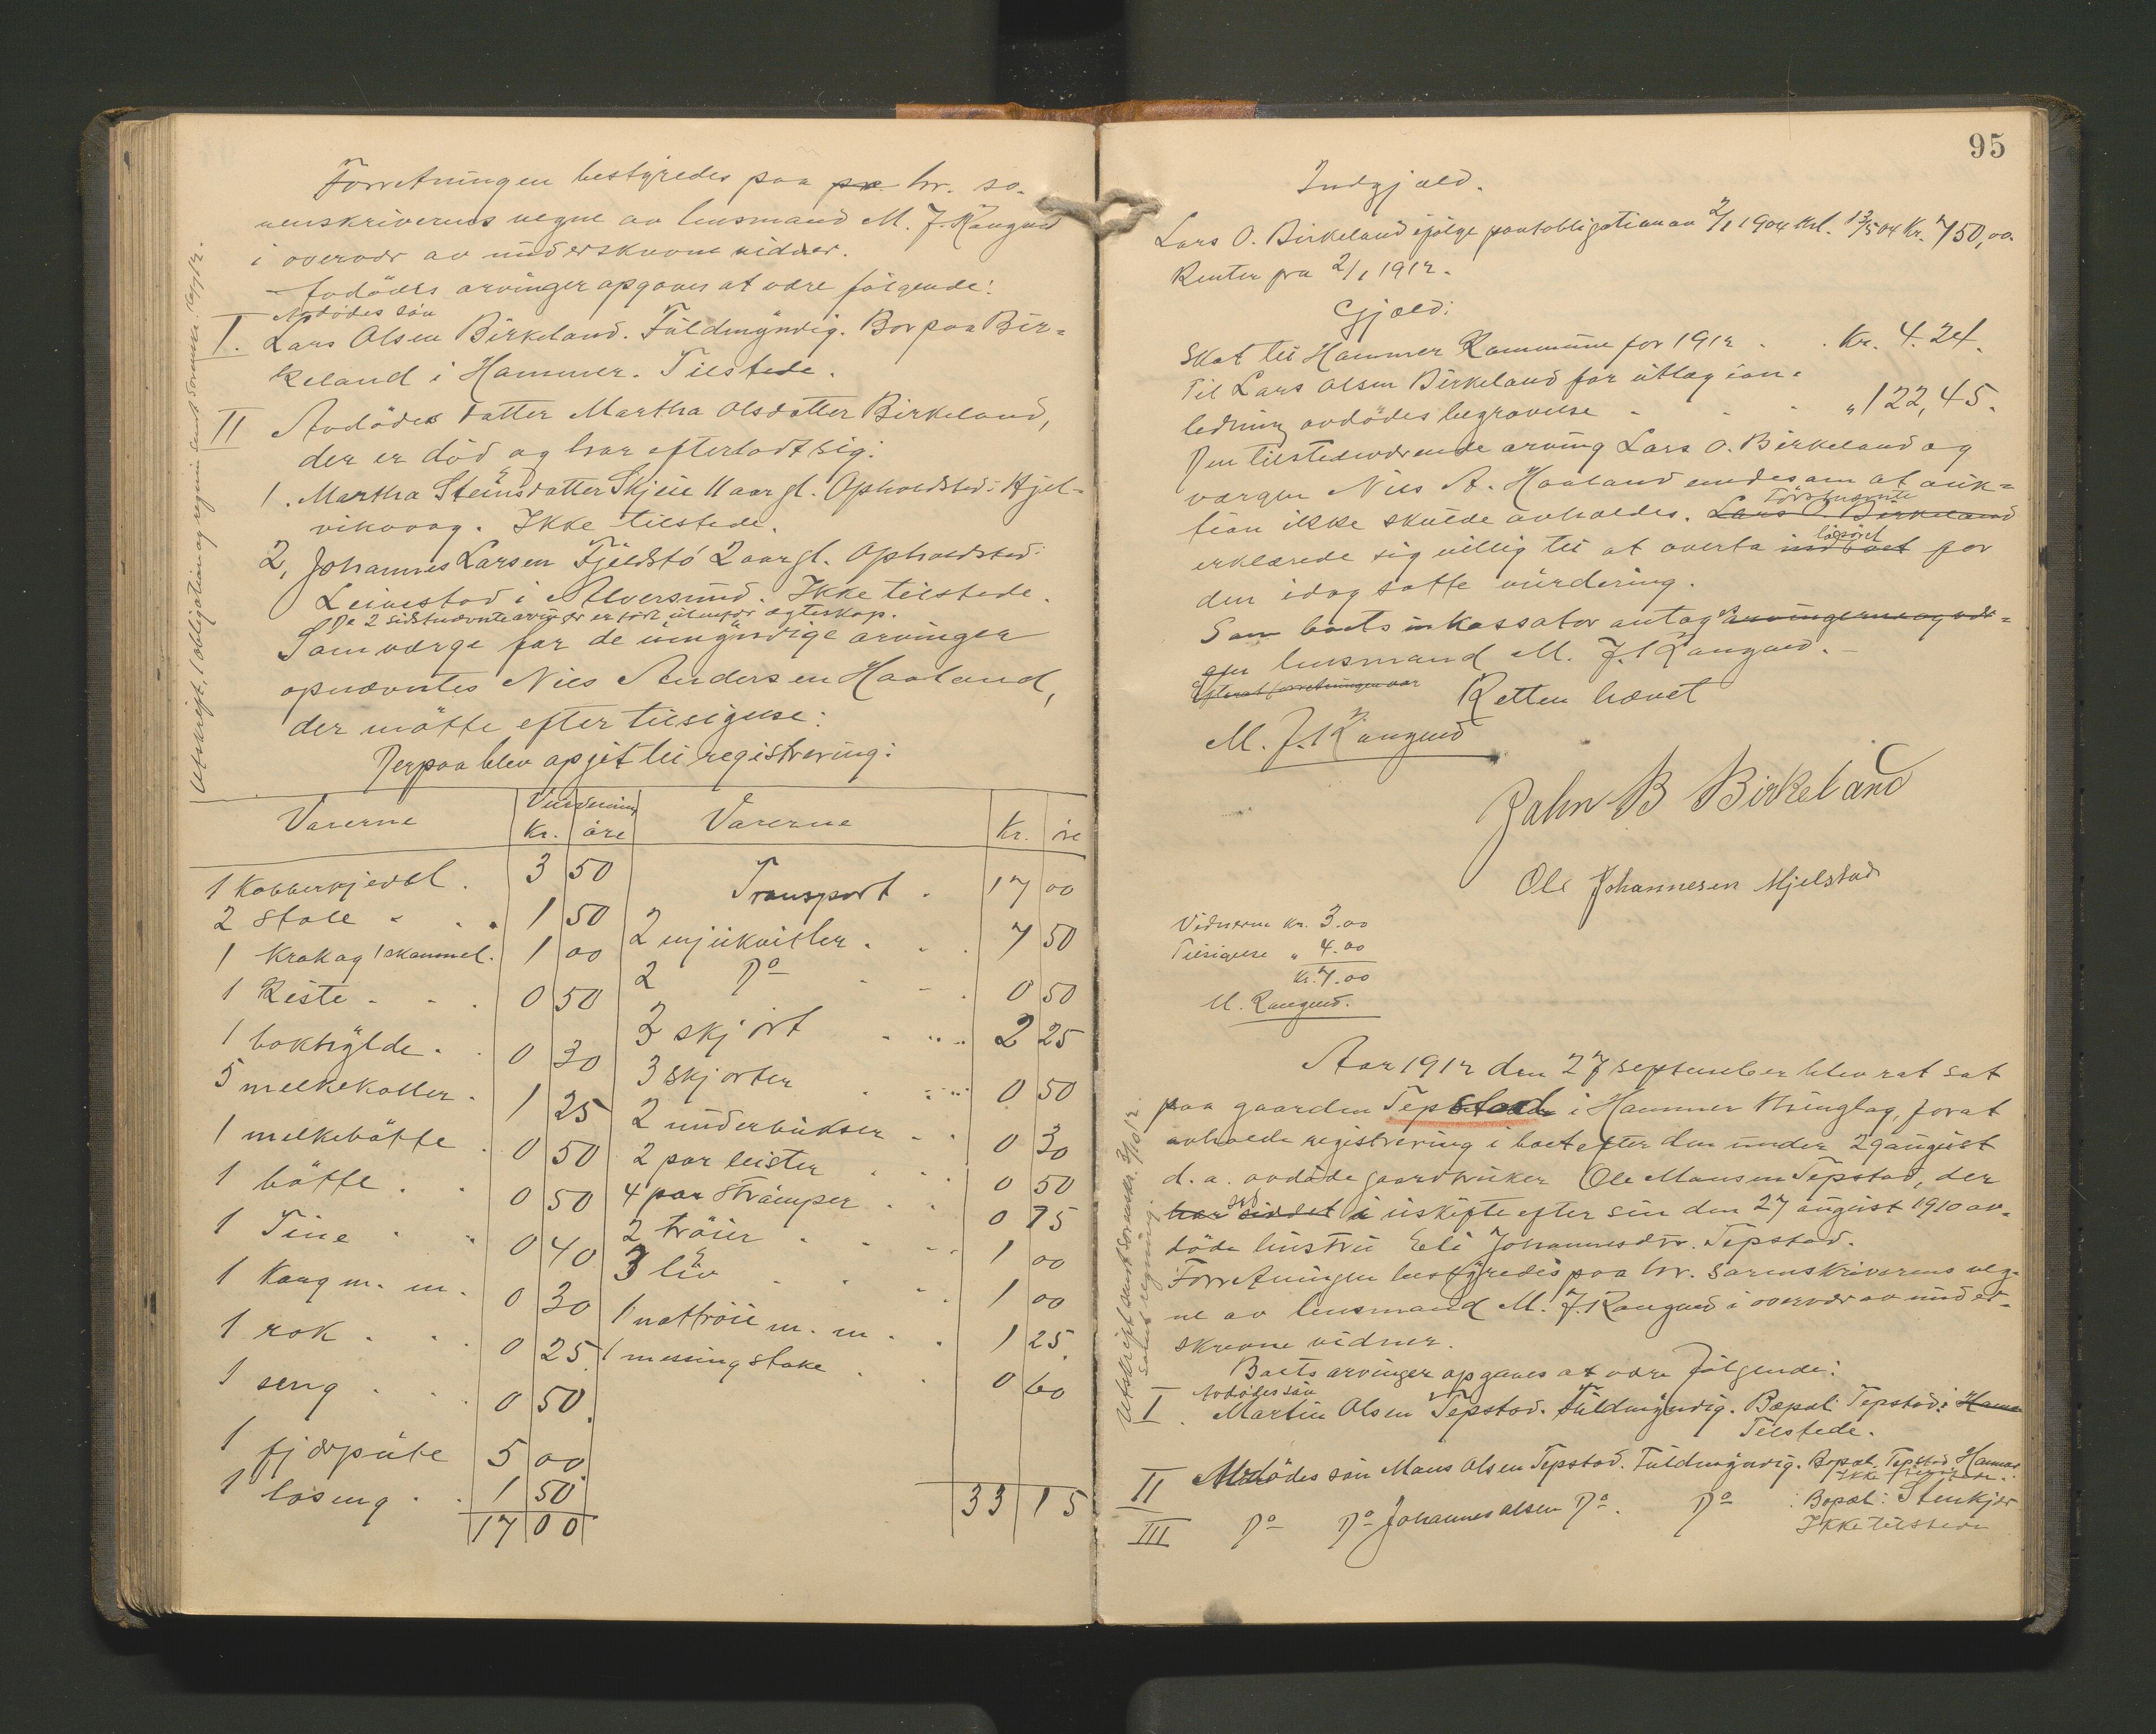 Forretningen bestyredes paa pr hr. so-
renskriverens vegne av lensmand M. J. Kaugned
i overvær av underskrevne vidner.
Avdödes arvinger opgaves at være følgende:
Avdödes sön
I. Lars Olsen Birkeland. Fuldmyndig. Bor paa Bir-
keland i Hammer. Tilstede.
II Avdödes datter Martha Olsdatter Birkeland,
der er död og har efterladt sig:
1. Martha Steinsdatter Skjeie 11 aar gl. Opholdsted: Hjel-
vikvaag. Ikke tilstede.
2, Johannes Larsen Fjeldstö 2 aar gl. Opholdsted:
Leivestad i Alversund. Ikke tilstede.
De 2 sidstnævnte arvinger er född utenfor ægteskap.
Som værge for de umyndige arvinger
opnævntes Nils Andersen Haaland,
der mötte efter tilsigelse:
Derpaa blev opgit til registrering:
Varerne Vurdering Kr. öre Varerne Kr. öre
1 Kobberkjedel. 3 50 Transport. 17 00
2 stole 1 50 2 mjukvitler 7 50
1 Krak og 1 skammel. 1 00 2 Do 0 50
1 Kiste 0 50 2 skjört 2 25
1 bokhylde 0 30 3 skjorter 0 50
5 melkekoller 1 25 2 underbukser 0 30
1 melkebötte 0 50 2 par leister 0 50
1 bötte 0 50 4 par strömper 0 75
1 Tine 0 40 2 tröier 1 00
1 Kaug m. m. 0 30 3 liv 1 00
1 rok 0 25 1 nattröie m. m. 1 25
1 seng 0 50 1 messingstake 0 60
1 fjærpute 5 00
1 løseng 1 50
17 00 33 15
Utskrift, 1 obligation og regning sendt sorenskr.
95
Indgjæld.
Lars O. Birkeland ifölge pantobligation av 2/1 1904 thl. 13/5 04 Kr. 750,00.
Renter fra 2/1 1912.
Gjæld:
Skat til Hammer Kommune for 1912 . . Kr. 4.24.
Til Lars Olsen Birkeland for utlæg i an-
ledning avdödes begravelse - - - " 122,45.
Den tilstedeværende arving Lars O. Birkeland og
værgen Nils A. Haaland enedes om at auk-
tion ikke skulde avholdes. Lars O. Birkeland Förstnævnte
erklærede sig villig til at overta indboet lösöret for
den idag satte vurdering.
Som boets inkassator antog arvingerne og vær-
gen lensmand M. J. Kaugned.
Efterat forretningen var Retten hævet
M. J. Kaugned
John B Birkeland
Ole Johannesen Mjelstad
Vidnerne Kr. 3.00
Tilsigelse " 4.00
Kr. 7.00
M. Kaugned.
Aar 1912 den 27 september blev ret sat
paa gaarden Tepstad i Hammer thinglag, for at
avholde registrering i boet efter den under 29 august
d. a. avdöde gaardbruker Ole Monsen Tepstad, der
har siddet sad i uskifte efter sin den 27 august 1910 av-
döde hustru Eli Johannesdtr. Tepstad.
Forretningen bestyredes paa hr. sorenskriverens veg-
ne av lensmand M. J. Kaugned i overvær av under-
skrevne vidner.
Boets arvinger opgaves at være følgende:
Avdödes sön
I. Martin Olsen Tepstad. Fuldmyndig. Bopæl: Tepstad i Hamre
Tilstede.
II Avdödes sön Mons Olsen Tepstad. Fuldmyndig. Bopæl. Tepstad Hammer
Ikke tilstede.
III Do Do Johannes Olsen Do. Do : Bopæl: Stenkjær
Ikke tilstede
Utskrift sendt sorenskr. 3/10 12.
samt regning.